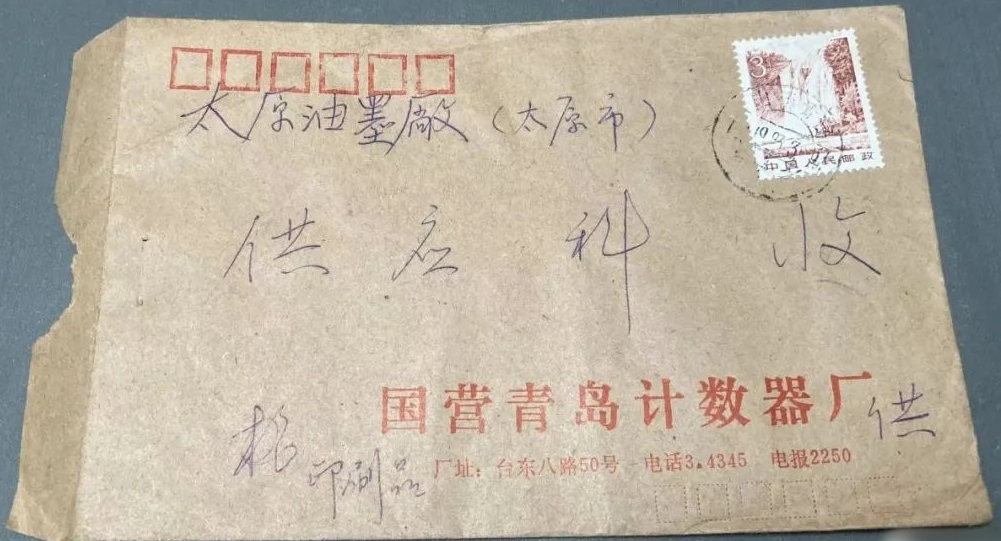 太原油墨廠（太原市）
供应科 收
3
中国人民邮政
国营青岛计数器厂 供
印刷品
厂址：台东八路50号 电话3.4345 电报2250